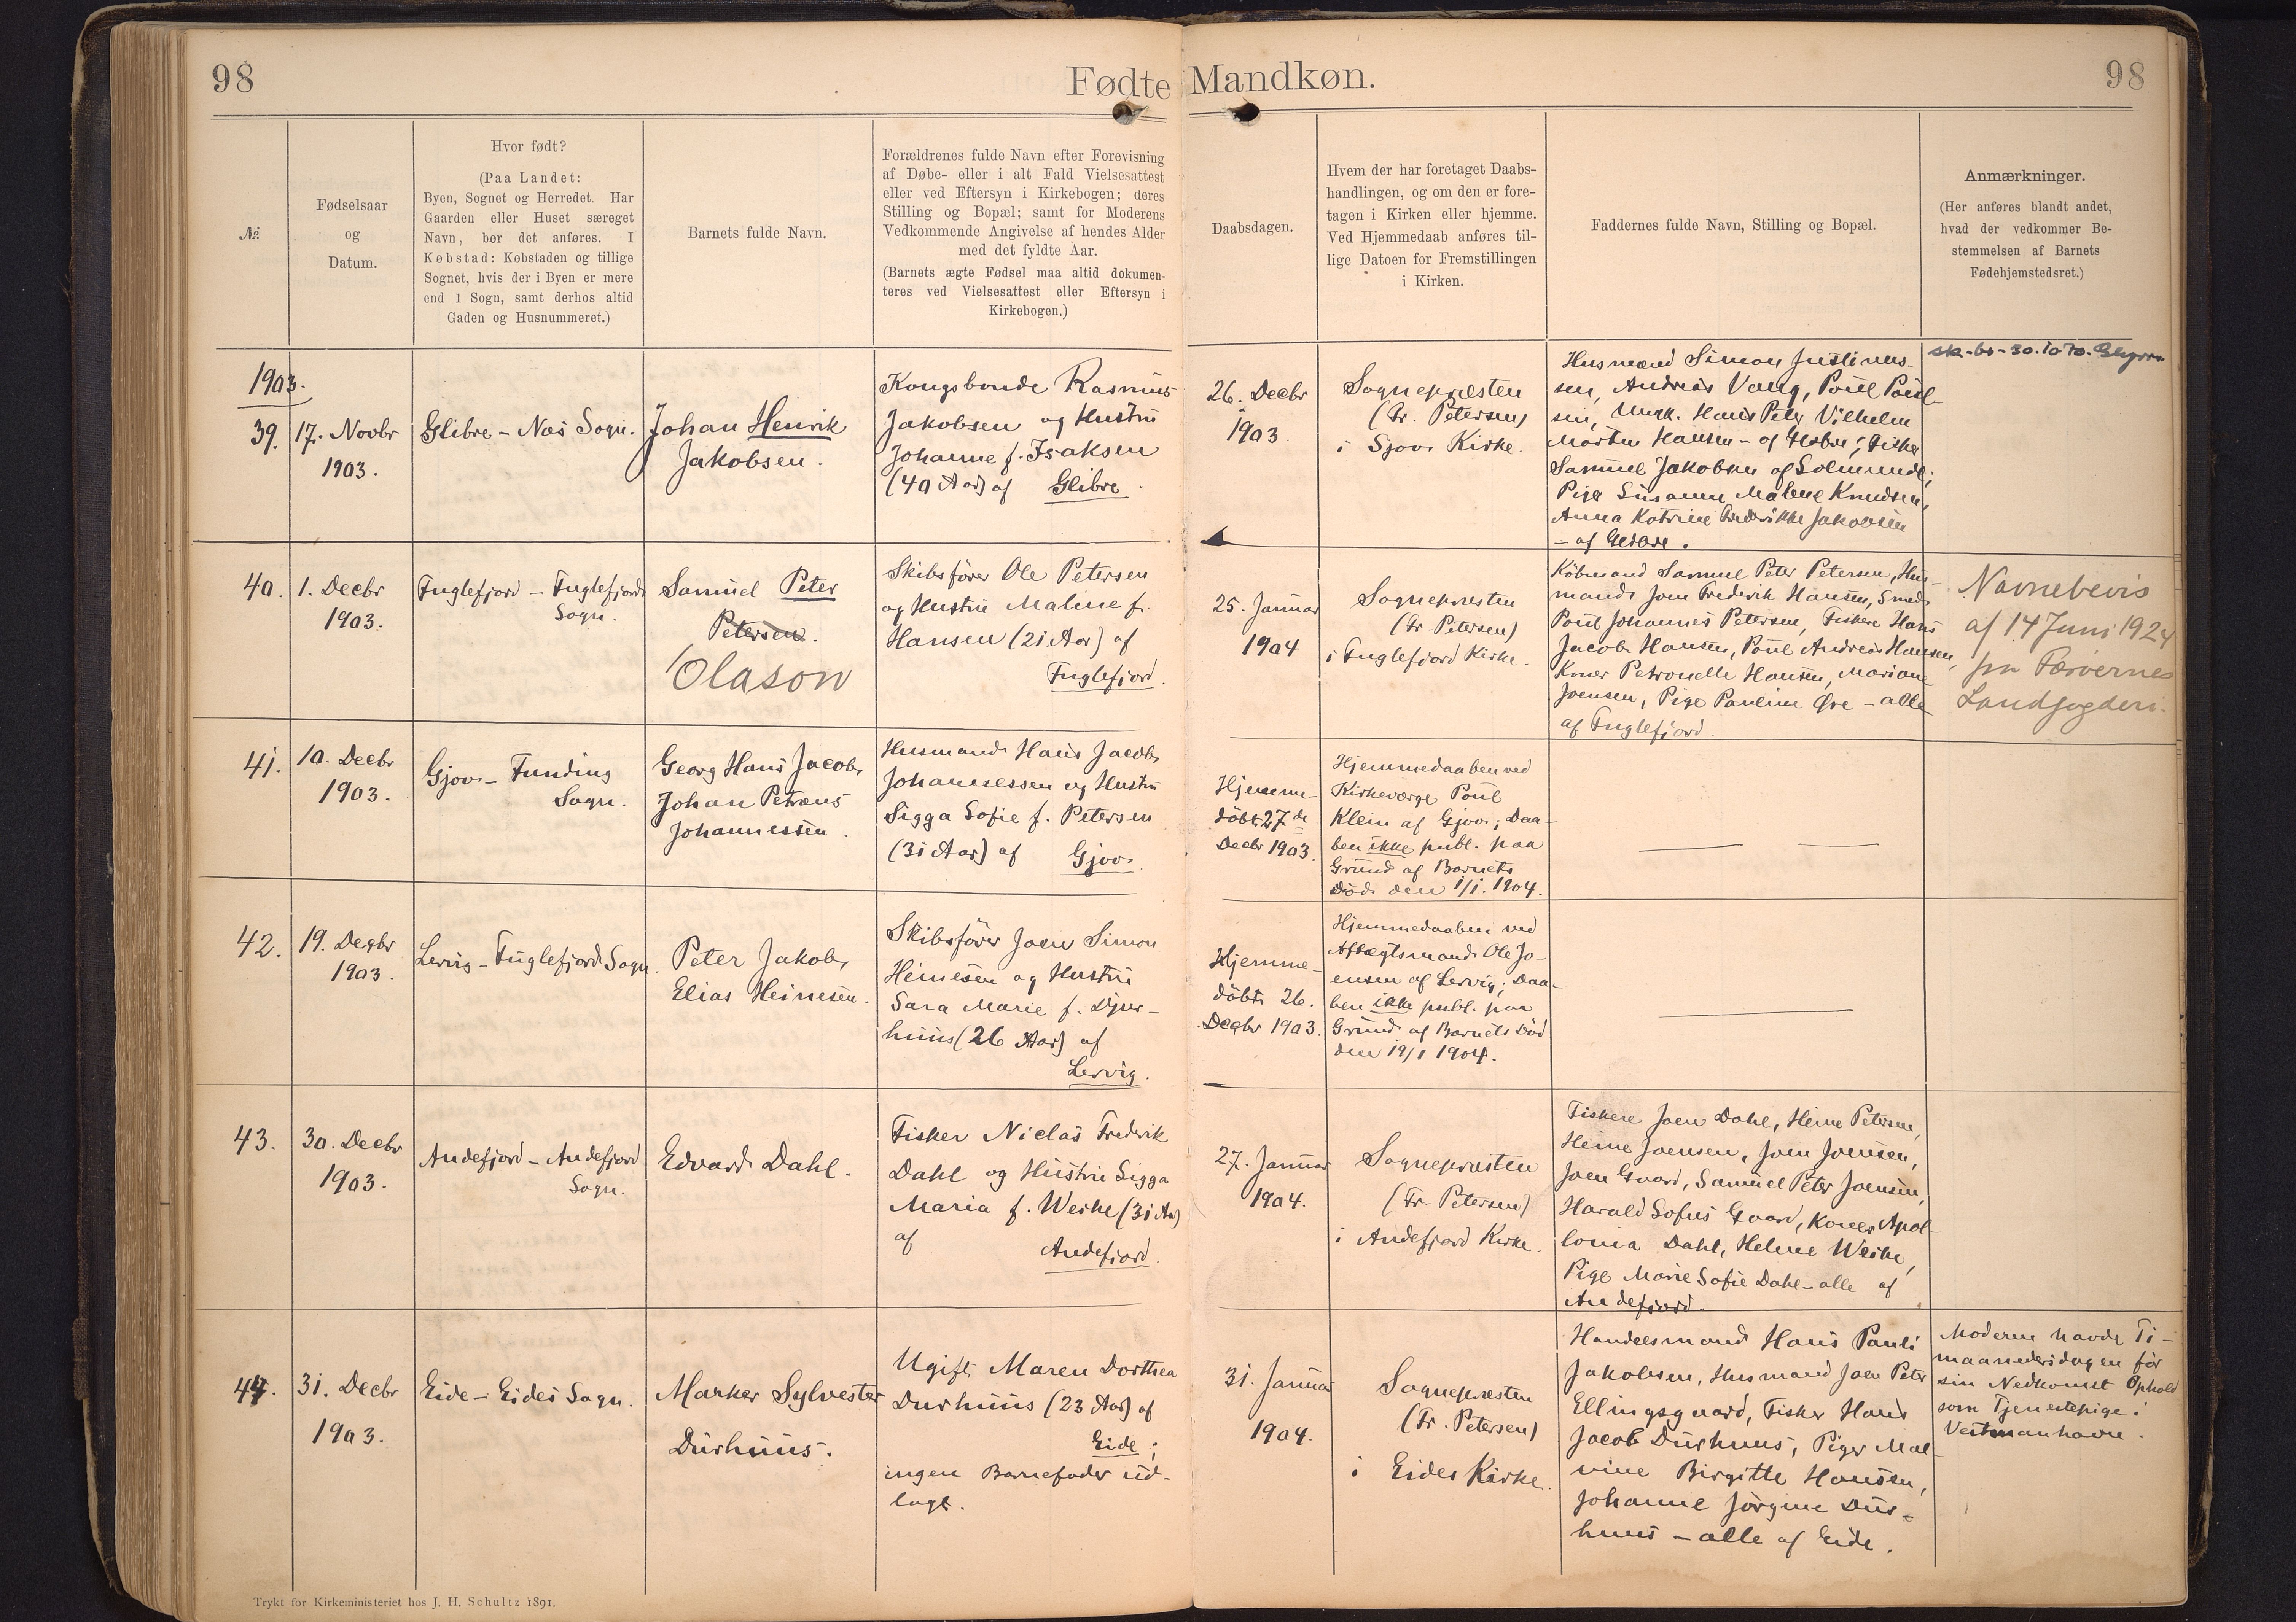 98
Fødte Mandkøn.
98
№
Fødselsaar
og
Datum.
Hvor født?
(Paa Landet:
Byen, Sognet og Herredet. Har
Gaarden eller Huset særeget
Navn, bør det anføres. I
Købstad: Købstaden og tillige
Sognet, hvis der i Byen er mere
end 1 Sogn, samt derhos altid
Gaden og Husnummeret.)
Barnets fulde Navn.
Forældrenes fulde Navn efter Forevisning
af Døbe- eller i alt Fald Vielsesattest
eller ved Eftersyn i Kirkebogen; deres
Stilling og Bopæl; samt for Moderens
Vedkommende Angivelse af hendes Alder
med det fyldte Aar.
(Barnets ægte Fødsel maa altid dokumen-
teres ved Vielsesattest eller Eftersyn i
Kirkebogen.)
Daabsdagen.
Hvem der har foretaget Daabs-
handlingen, og om den er fore-
tagen i Kirken eller hjemme.
Ved Hjemmedaab anføres til-
lige Datoen for Fremstillingen
i Kirken.
Faddernes fulde Navn, Stilling og Bopæl.
Anmærkninger.
(Her anføres blandt andet,
hvad der vedkommer Be-
stemmelsen af Barnets
Fødehjemstedsret.)
1903.
39.
17. Novbr
1903.
Glibre - Næs Sogn.
Johan Henrik
Jakobsen.
Kongsbonde Rasmus
Jakobsen og Hustru
Johanne f. Isaksen
(40 Aar) af Glibre.
26. Decbr
1903.
Sognepræsten
(Fr. Petersen)
i Sjov Kirke.
Husmænd Simon Justinus-
sen, Andreas Vang, Poul Poul-
sen, Ungk. Hans Peter Vilhelm
Morten Hansen - af Glibre; Fisker
Samuel Jakobsen af Solmunde;
Pige Susanne Malene Knudsen,
Anna Katrine Frederikke Jakobsen
- af Glibre.
sk. br - 30.10.70.
40.
1. Decbr
1903.
Fuglefjord - Fuglefjord
Sogn.
Samuel Peter
Petersen.
Olason
Skibsfører Ole Petersen
og Hustru Malene f.
Hansen (21 Aar) af
Fuglefjord.
25. Januar
1904
Sognepræsten
(Fr. Petersen)
i Fuglefjord Kirke.
Købmand Samuel Peter Petersen, Hus-
mand Joen Frederik Hansen, Smed
Poul Johannes Petersen, Fiskere Hans
Jacob Hansen, Poul Andreas Hansen,
Koner Petronelle Hansen, Mariane
Joensen, Pige Pauline Øre - alle
af Fuglefjord.
Navnebevis
af 14 Juni 1924
fra Færøernes
Landfogderi.
41.
10. Decbr
1903.
Gjov - Funding
Sogn.
Georg Hans Jacob
Johan Petræus
Johannessen.
Husmand Hans Jacob
Johannessen og Hustru
Sigga Sofie f. Petersen
(31 Aar) af Gjov.
Hjemme-
døbt 27de
Decbr 1903.
Hjemmedaaben ved
Kirkeværge Poul
Klein af Gjov; Daa-
ben ikke publ. paa
Grund af Barnets
Død den 1/1. 1904.
42.
19. Decbr
1903.
Lervig - Fuglefjord Sogn.
Peter Jakob
Elias Heinesen.
Skibsfører Joen Simon
Heinesen og Hustru
Sara Marie f. Djur-
huus (26 Aar) af
Lervig.
Hjemme-
døbt 26.
Decbr 1903.
Hjemmedaaben ved
Aftægtsmand Ole Jo-
ensen af Lervig; Daa-
ben ikke publ. paa
Grund af Barnets Død
den 19/1 1904.
43.
30. Decbr
1903.
Andefjord - Andefjord
Sogn.
Edvard Dahl.
Fisker Niclas Frederik
Dahl og Hustru Sigga
Maria f. Weihe (31 Aar)
af
Andefjord.
27. Januar
1904.
Sognepræsten
(Fr. Petersen)
i Andefjord Kirke.
Fiskere Joen Dahl, Heine Petersen,
Heine Joensen, Joen Joensen,
Joen Gaard, Samuel Peter Joensen,
Harald Sofus Gaard, Koner Apol-
lonia Dahl, Helene Weihe,
Pige Marie Sofie Dahl - alle af
Andefjord.
44.
31. Decbr
1903.
Eide - Eides Sogn.
Marker Sylvester
Durhuus.
Ugift Maren Dorthea
Durhuus (23 Aar) af
Eide;
ingen Barnefader ud-
lagt.
31. Januar
1904.
Sognepræsten
(Fr. Petersen)
i Eides Kirke.
Handelsmand Hans Pauli
Jakobsen, Husmand Joen Peter
Ellingsgaard, Fisker Hans
Jacob Durhuus, Piger Mal-
vine Birgitte Hansen,
Johanne Jørgine Dur-
huus - alle af Eide.
Moderen havde Ti-
maanedersdagen før
sin Nedkomst Ophold
som Tjenestepige i
Vestmanhavn.
Trykt for Kirkeministeriet hos J. H. Schultz 1891.